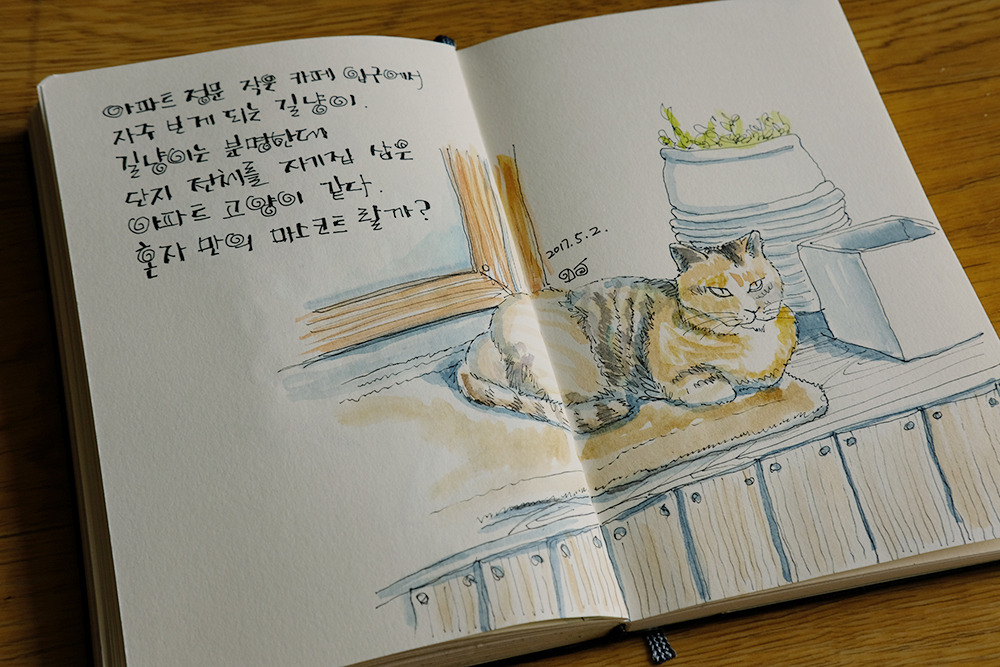 아파트 정문 작은 카페 입구에서
자주 보게 되는 길냥이.
길냥이는 분명한데
단지 전체를 자기집 삼은
아파트 고양이 같다.
혼자 만의 마스코트랄까?
2017.5.2.